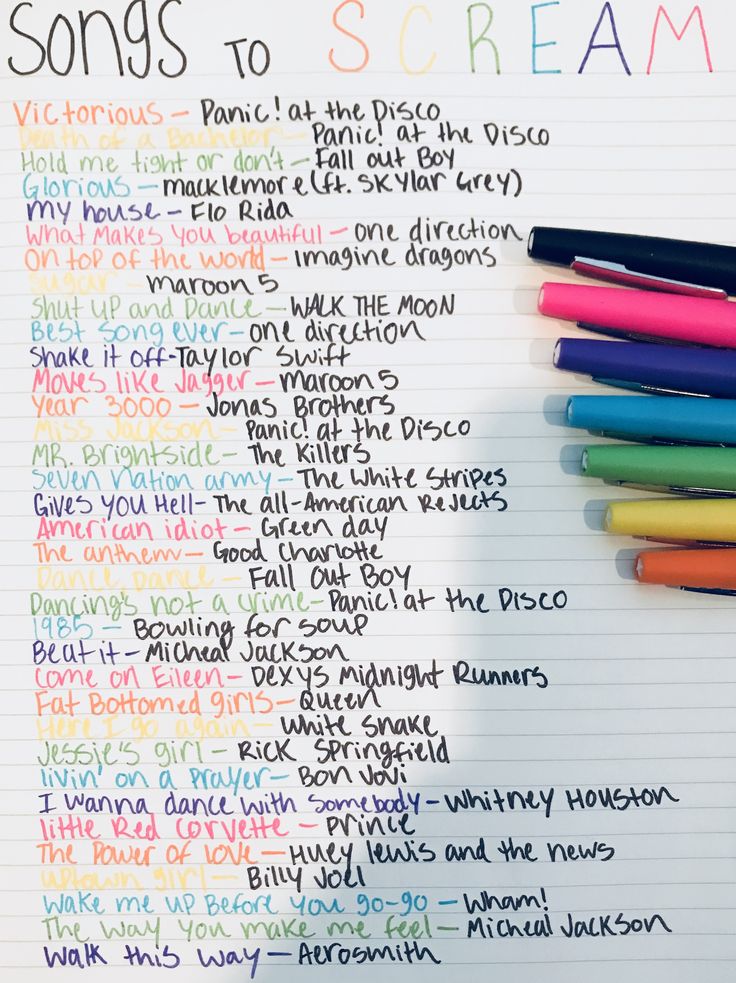 Songs to SCREAM
Victorious - Panic! at the Disco
Death of a Bachelor - Panic! at the Disco
Hold me tight or don't - Fall out Boy
Glorious - macklemore (ft. Skylar Grey)
my house - Flo Rida
What Makes You beautiful - one direction
On top of the world - imagine dragons
Sugar - maroon 5
Shut up and Dance - WALK THE MOON
Best song ever - one direction
Shake it off - Taylor Swift
Moves like Jagger - maroon 5
Year 3000 - Jonas Brothers
Miss Jackson - Panic! at the Disco
MR. Brightside - The Killers
Seven nation army - The White Stripes
Gives you Hell - The all-American Rejects
American idiot - Green day
The anthem - Good Charlotte
Dance, Dance - Fall Out Boy
Dancing's not a crime - Panic! at the Disco
1985 - Bowling for soup
Beat it - Micheal Jackson
Come on Eileen - Dexys Midnight Runners
Fat Bottomed girls - Queen
Here I go again - White Snake
Jessie's girl - Rick Springfield
livin' on a Prayer - Bon Jovi
I wanna dance with somebody - Whitney Houston
little Red Corvette - Prince
The Power of love - Huey lewis and the news
uptown girl - Billy Joel
Wake me up Before you go-go - Wham!
The way you make me feel - Micheal Jackson
Walk this way - Aerosmith